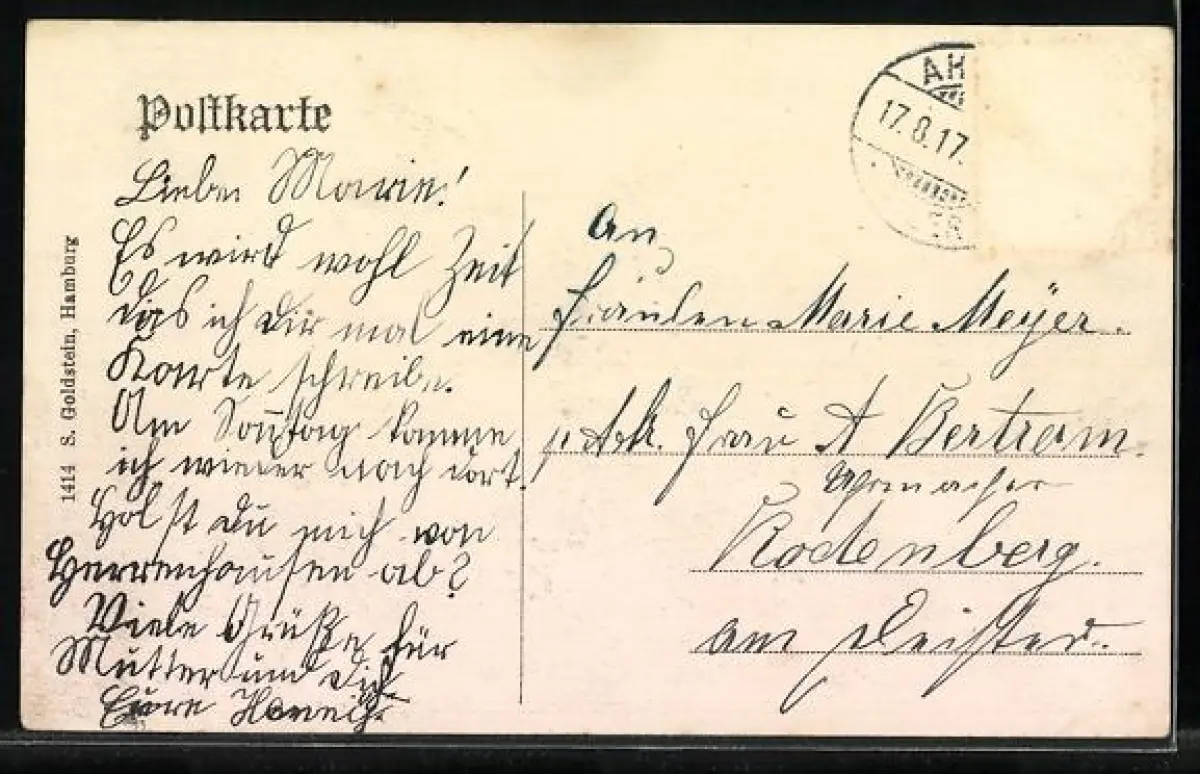 Postkarte
AH
17.8.17.
Liebe Marie!
Es wird wohl Zeit
das ich dir mal eine
Karte schreibe.
Am Sonntag komme
ich wieder nach dort.
Holst du mich von
Herrenhausen ab?
Viele Grüße für
Mutter und dich
Eure
An
Fräulen Marie Meÿer.
Frau A Bertram.
Uhrmacher
Rodenberg.
am Deister.
1414 S. Goldstein, Hamburg